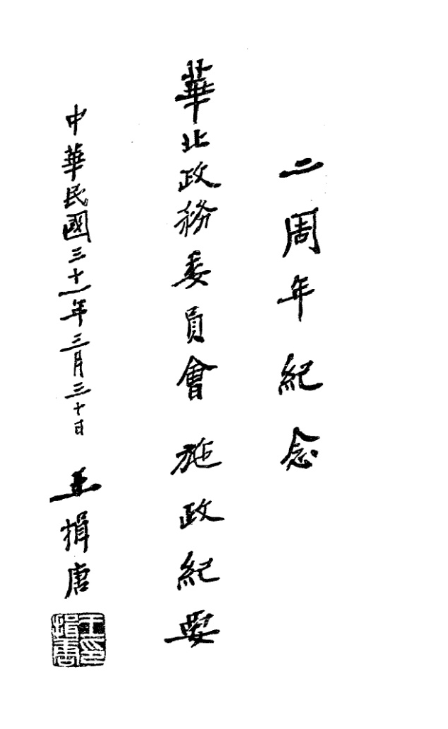 二周年紀念
華北政務委員會施政紀要
中華民國三十一年三月三十日 王揖唐
王揖唐印